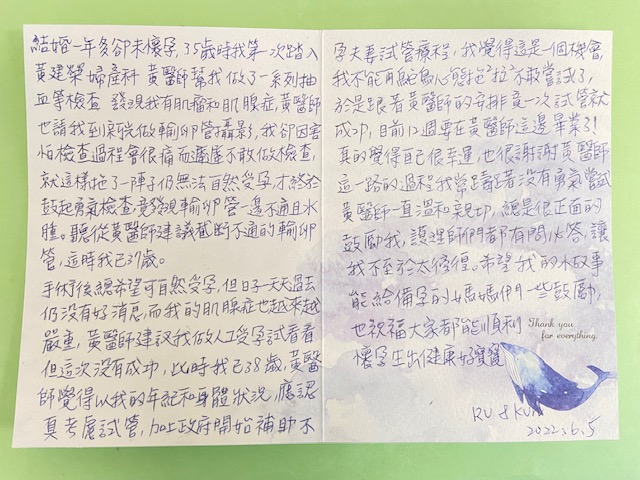 結婚一年多卻未懷孕，35歲時我第一次踏入
黃建榮婦產科 黃醫師幫我做了一系列抽
血等檢查 發現我有肌瘤和肌腺症，黃醫師
也請我到宸恺做輸卵管攝影，我卻因害
怕檢查過程會很痛而遲遲不敢做檢查，
就這樣拖了一陣子仍無法自然受孕才終於
鼓起勇氣檢查，竟發現輸卵管一邊不通且水
腫。聽從黃醫師建議截斷不通的輸卵
管，這時我已37歲。
手術後總希望可自然受孕，但日子一天天過去
仍沒有好消息，而我的肌腺症也越來越
嚴重，黃醫師建議我做人工受孕試看看
但這次沒有成功，此時我已38歲，黃醫
師覺得以我的年紀和身體狀況，應認
真考慮試管，加上政府開始補助不
孕夫妻試管療程，我覺得這是一個機會，
我不能再鴕鳥心態地拉不敢嘗試了，
於是跟著黃醫師的安排竟一次試管就
成功，目前12週要在黃醫師這邊畢業了！
真的覺得自己很幸運，也很謝謝黃醫師
這一路的過程我常躊躇著沒有勇氣嘗試
黃醫師一直溫和親切，總是很正面的
鼓勵我，護理師們都有問必答，讓
我不至於太徬徨。希望我的小故事
能給備孕的媽媽們一些鼓勵，
也祝福大家都能順利
懷孕生出健康好寶寶
Thank you
for everything.
RU & KUN
2022.6.5